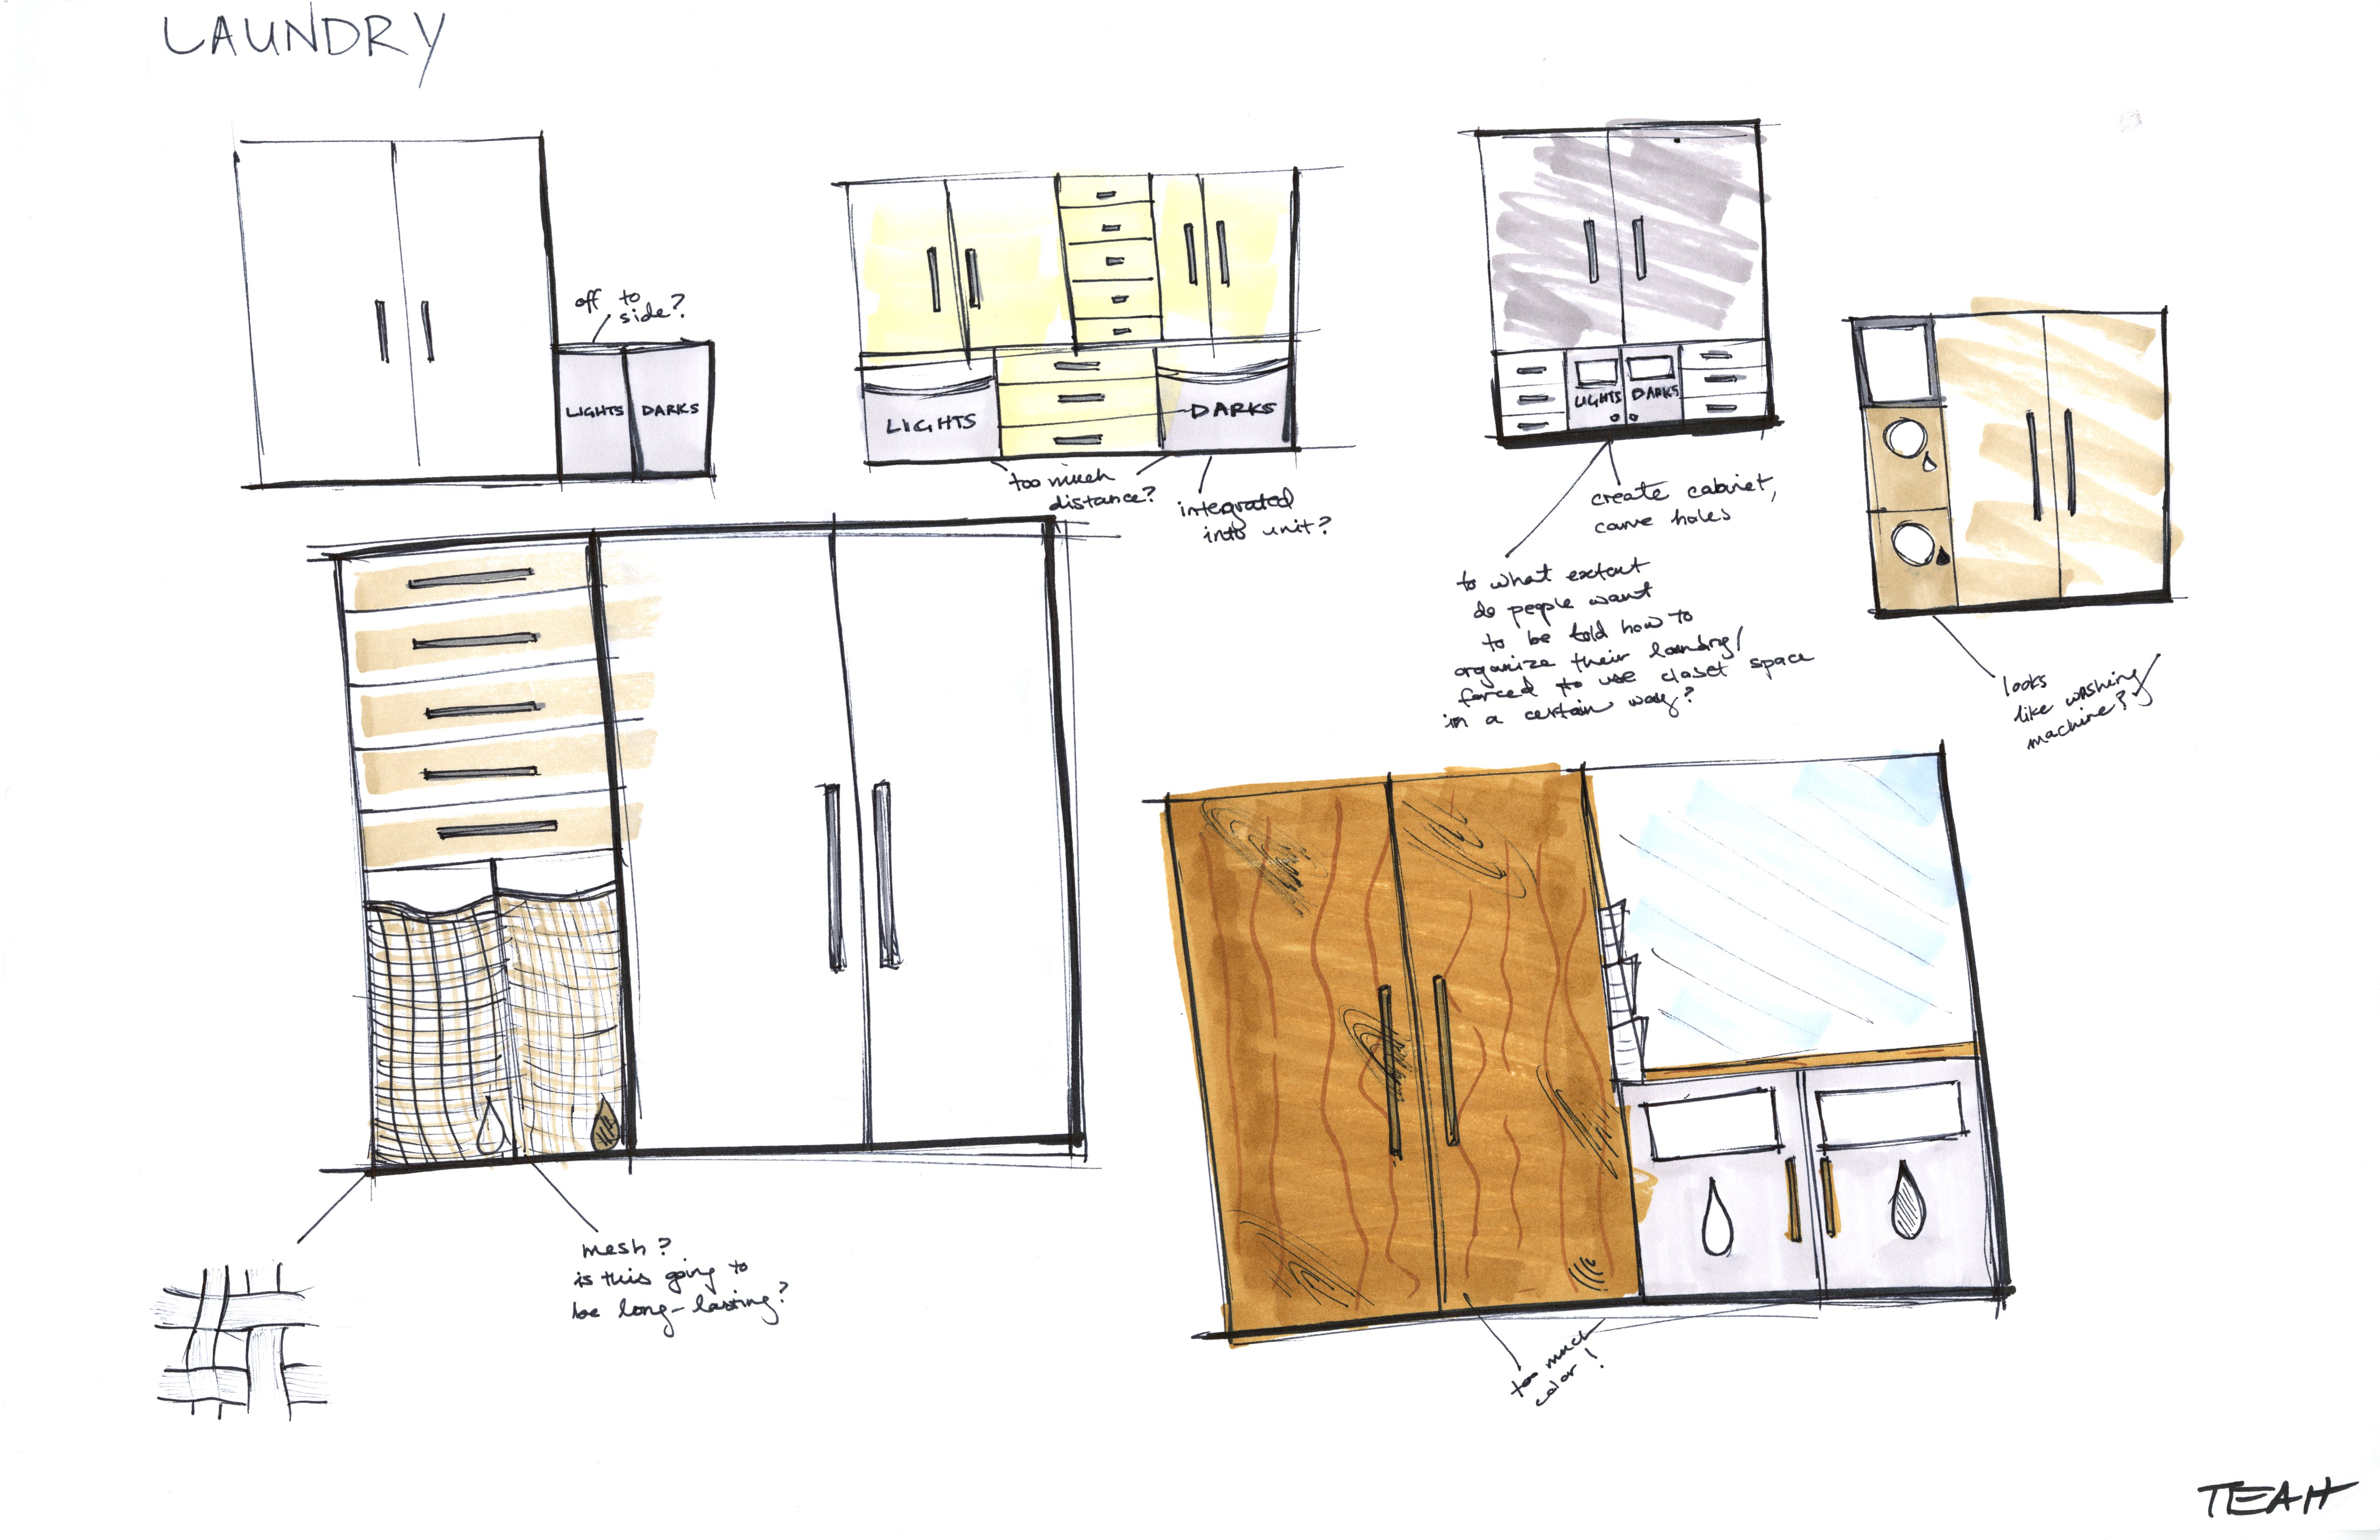 LAUNDRY
off to
side?
LIGHTS DARKS
LIGHTS
DARKS
too much
distance?
integrated
into unit?
LIGHTS DARKS
create cabinet,
carve holes
to what extent
do people want
to be told how to
organize their laundry/
forced to use closet space
in a certain way?
looks
like washing
machine?
mesh?
is this going to
be long-lasting?
too much
color!
TEAH